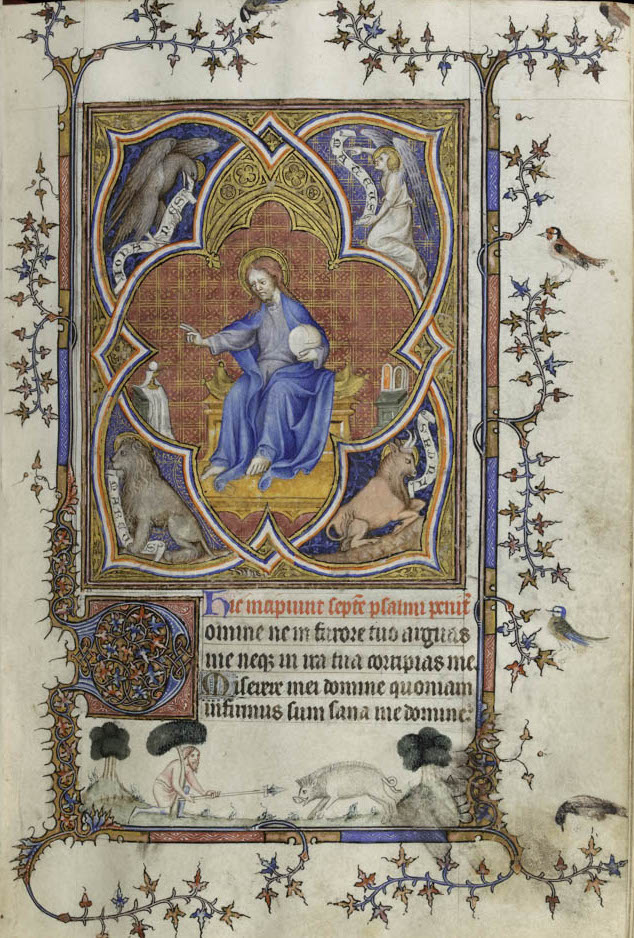 Hic incipiunt septē psalmi penit̄
Domine ne in furore tuo arguas
me neqꝫ in ira tua corripias me.
Miserere mei domine quoniam
infirmus sum sana me domine.